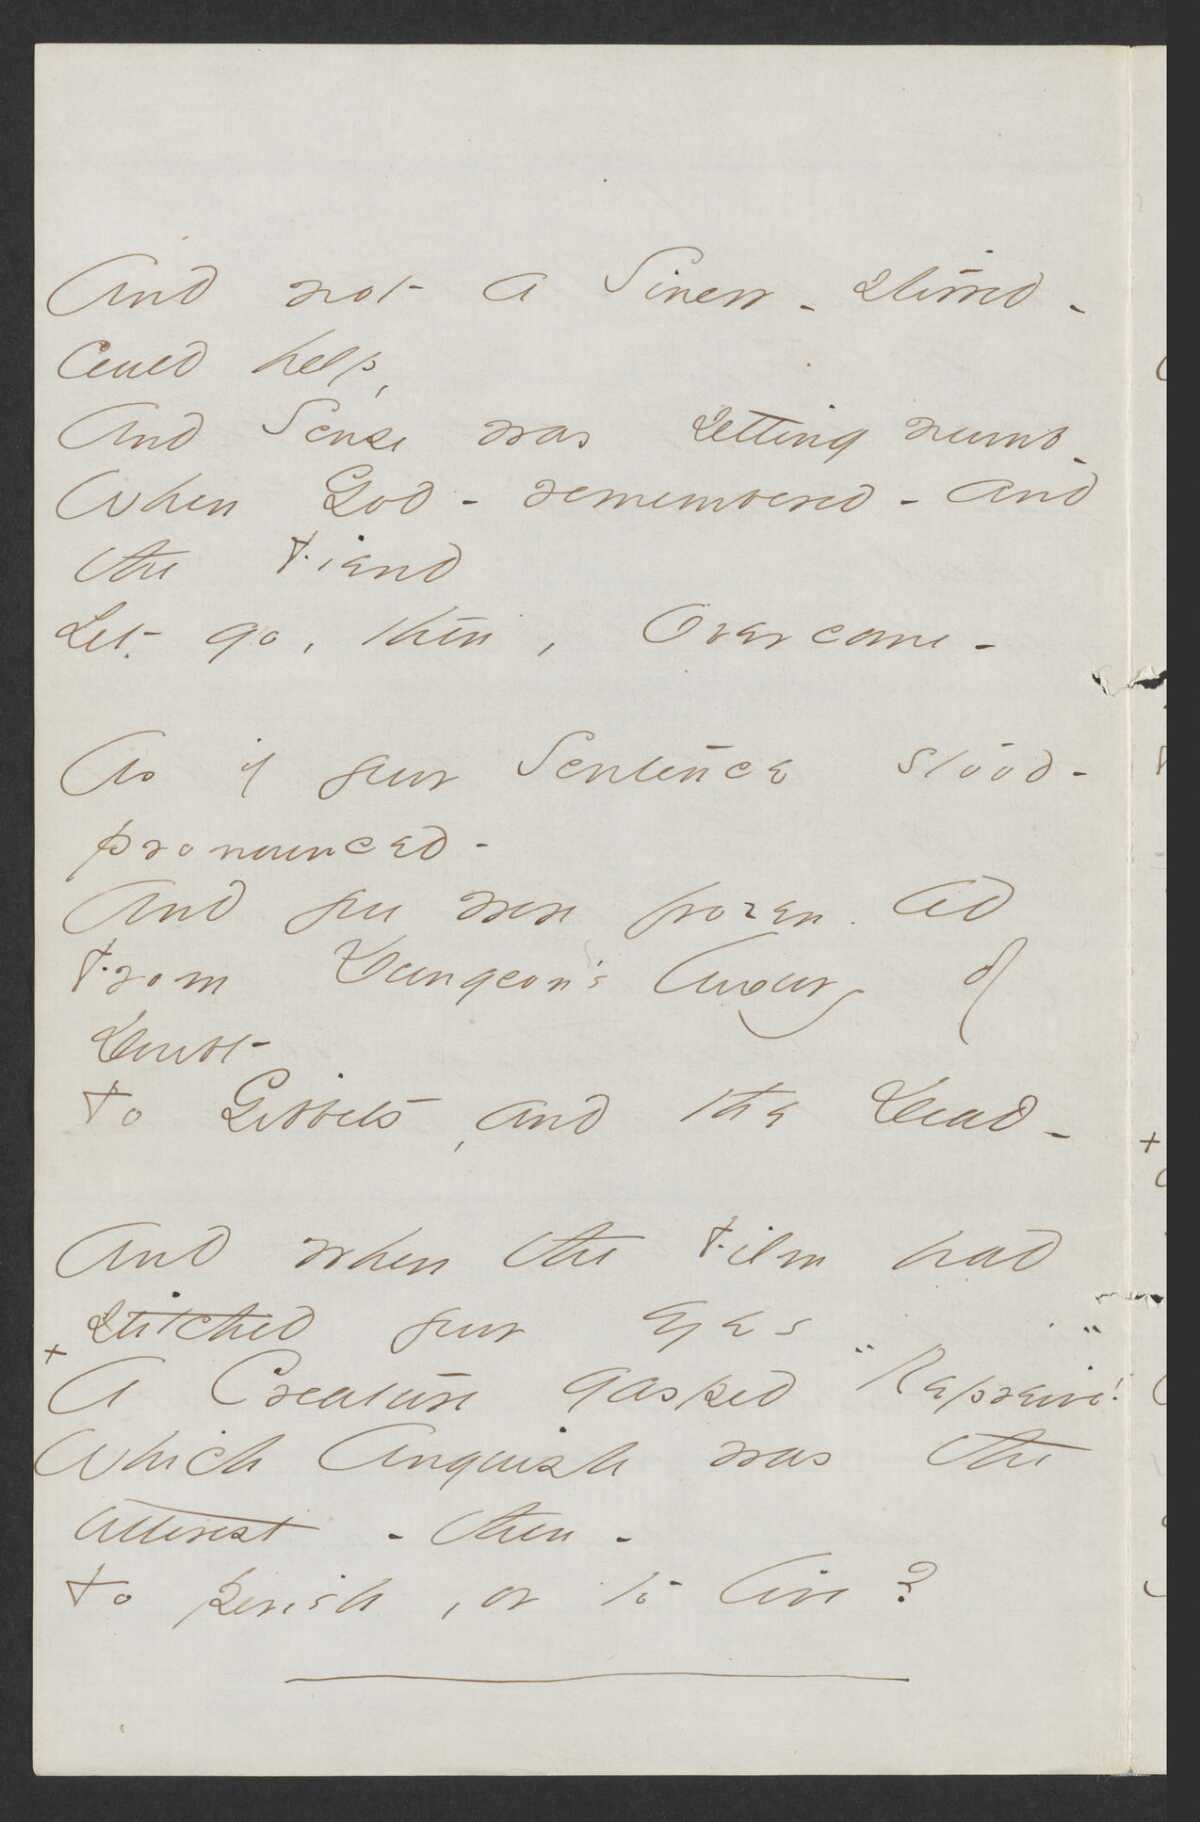 And not a Sinew - stirred -
Could help,
And Sense was setting numb -
When God - remembered - and
the Fiend
Let go, then, Overcome -
As if your Sentence stood -
pronounced -
And you were frozen led
From Dungeon's luxury of
Doubt
To Gibbets, and the Dead -
And when the Film had
stitched your eyes
+
A Creature gasped "Reprieve"!
Which Anguish was the
utterest - then -
To perish, or to live?